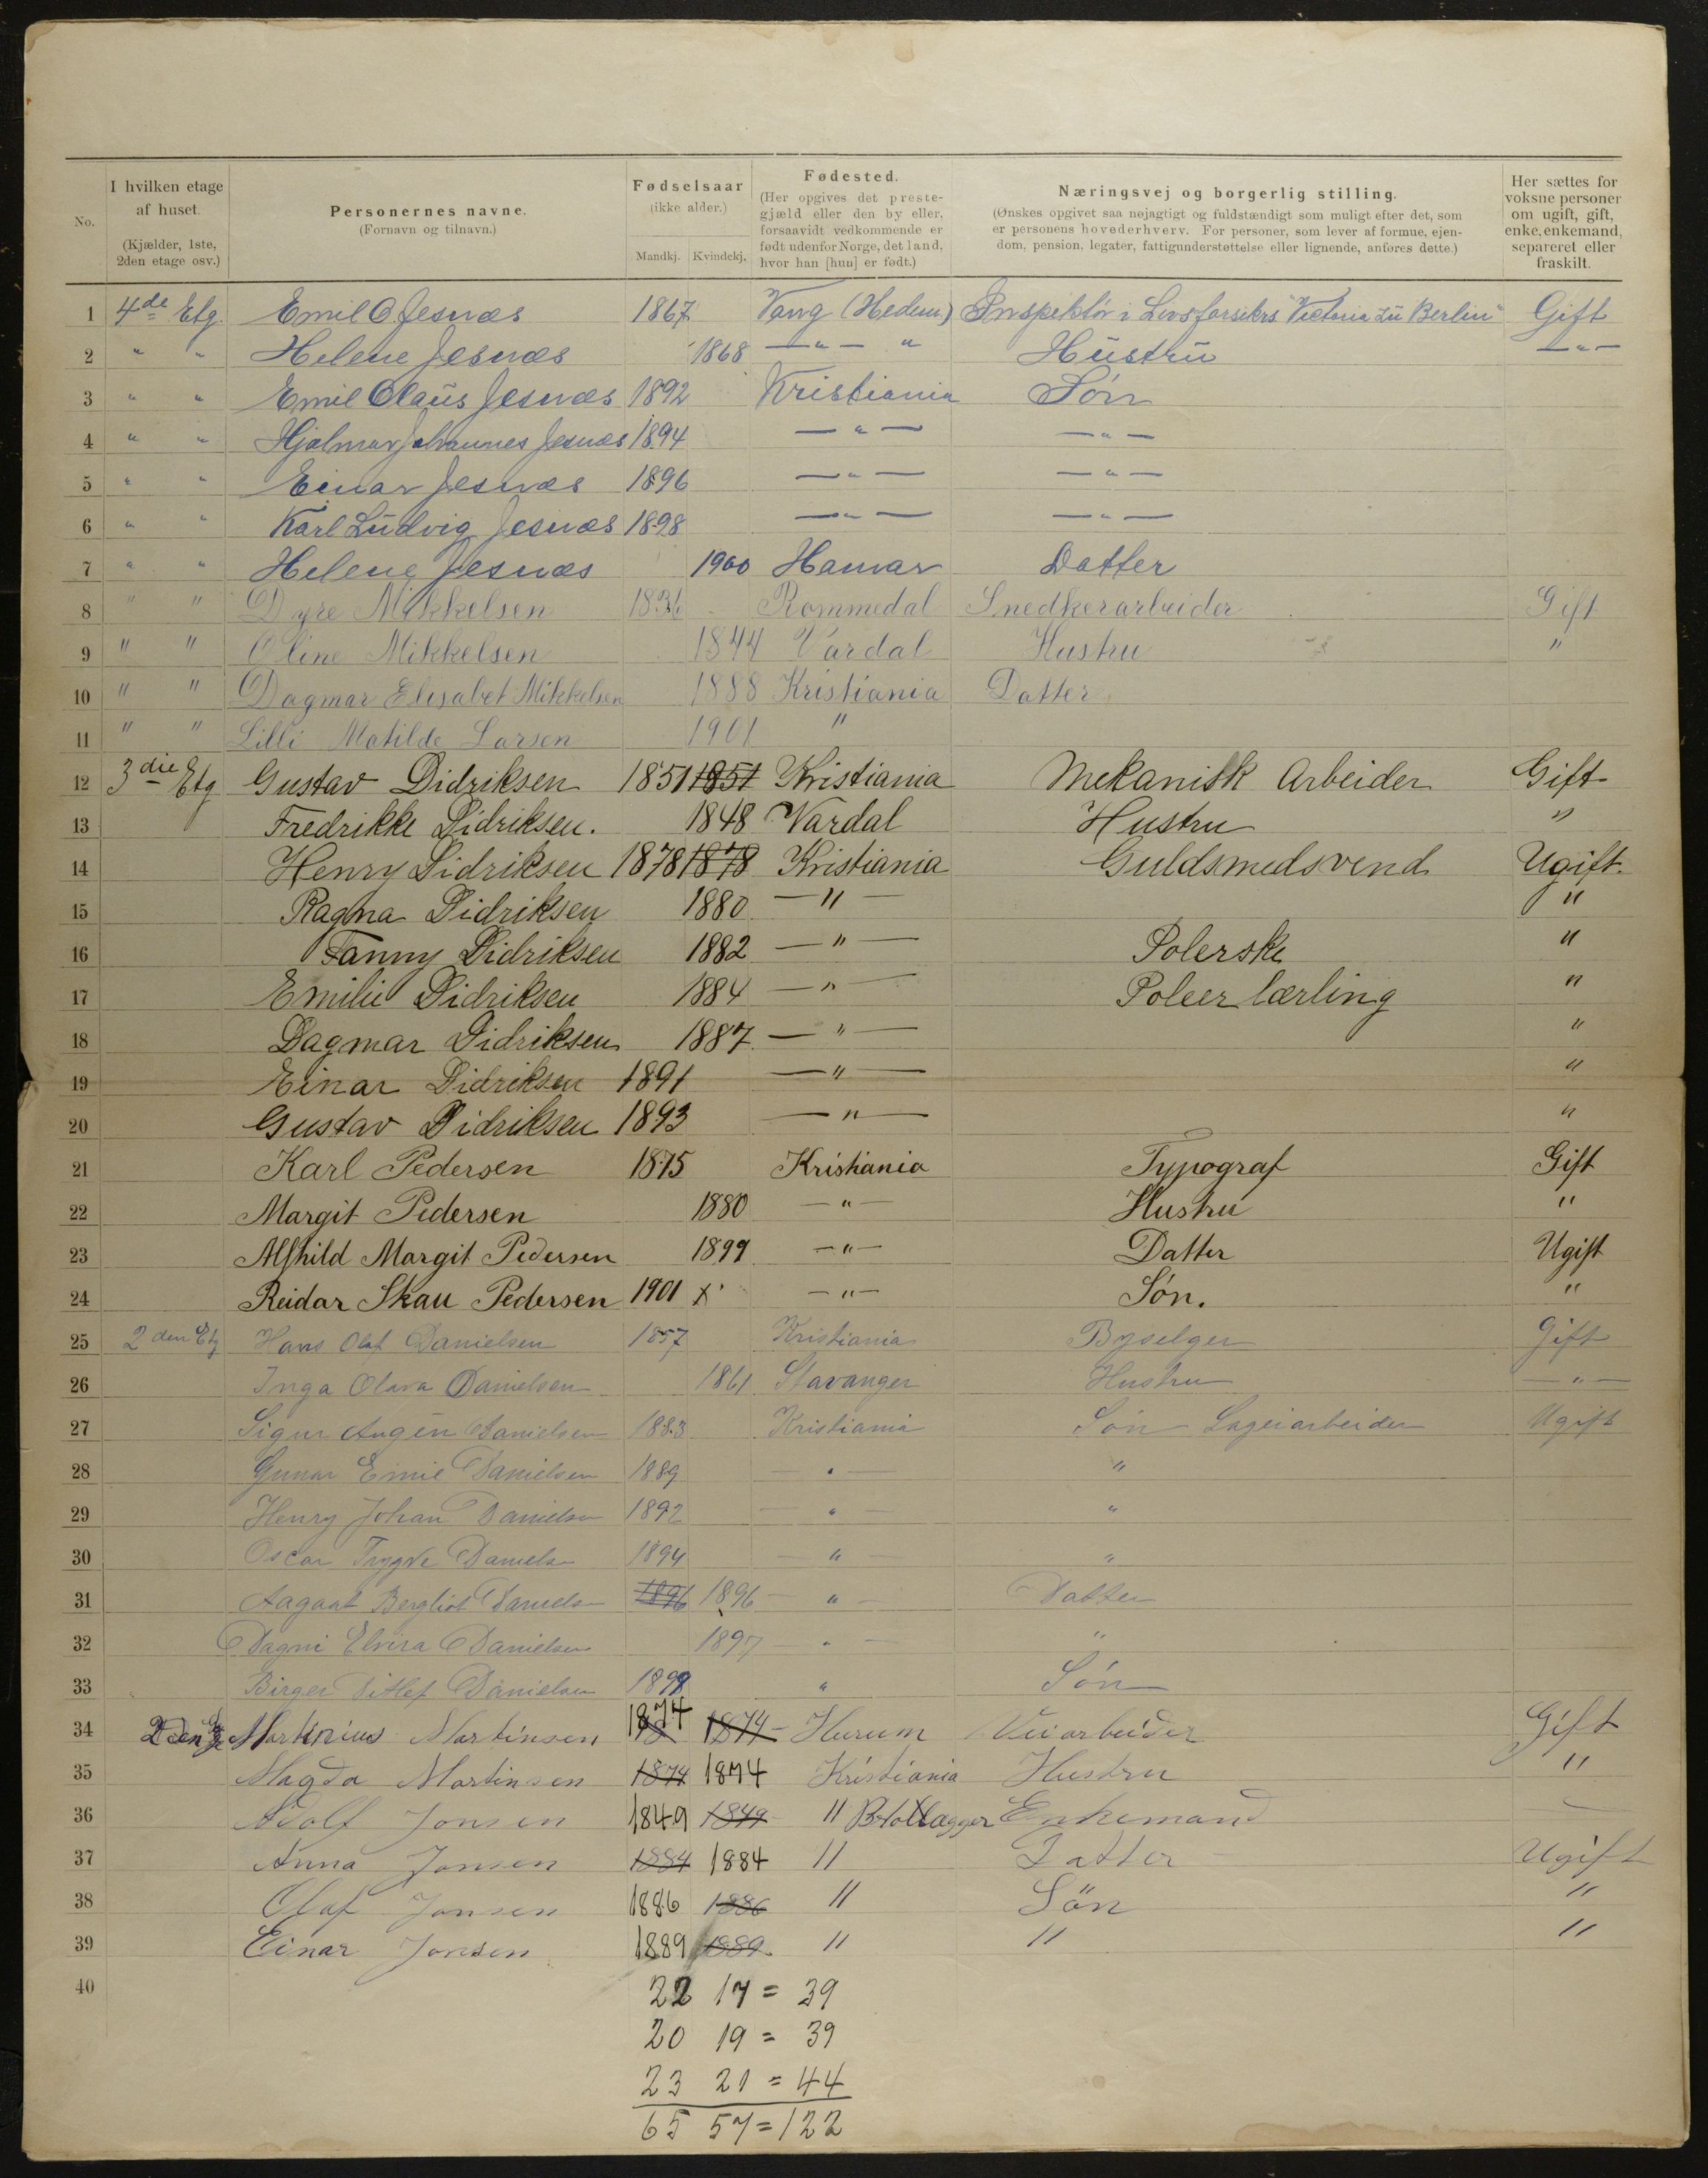 No. I hvilken etage af huset. (Kjælder, 1ste, 2den etage osv.) Personernes navne. (Fornavn og tilnavn.) Fødselsaar (ikke alder.) Mandkj. Kvindekj. Fødested. (Her opgives det prestegjæld eller den by eller, forsaavidt vedkommende er født udenfor Norge, det land, hvor han [hun] er født.) Næringsvej og borgerlig stilling. (Ønskes opgivet saa nøjagtigt og fuldstændigt som muligt efter det, som er personens hovederhverv. For personer, som lever af formue, ejendom, pension, legater, fattigunderstøttelse eller lignende, anføres dette.) Her sættes for voksne personer om ugift, gift, enke, enkemand, separeret eller fraskilt.
1 4de Etg. Emil O Jesnæs 1867 Vang (Hedem) Inspektør i Livsforsikrs "Victoria zu Berlin" Gift
2 " " Helene Jesnæs 1868 —"— " Hustru —"—
3 " " Emil Olaus Jesnæs 1892 Kristiania Søn
4 " " Hjalmar Johannes Jesnæs 1894 —"— —"—
5 " " Einar Jesnæs 1896 —"— —"—
6 " " Karl Ludvig Jesnæs 1898 —"— —"—
7 " " Helene Jesnæs 1900 Hamar Datter
8 " " Dyre Mikkelsen 1836 Rommedal Snedkerarbeider Gift
9 " " Oline Mikkelsen 1844 Vardal Hustru "
10 " " Dagmar Elisabet Mikkelsen 1888 Kristiania Datter
11 " " Lilli Matilde Larsen 1901 "
12 3die Etg Gustav Didriksen 1851 1851 Kristiania Mekanisk Arbeider Gift
13 Fredrikke Didriksen. 1848 Vardal Hustru "
14 Henry Didriksen 1878 1878 Kristiania Guldsmedsvend Ugift.
15 Ragna Didriksen 1880 —"— "
16 Fanny Didriksen 1882 —"— Polerske "
17 Emilie Didriksen 1884 —"— Poleer lærling "
18 Dagmar Didriksen 1887. —"— "
19 Einar Didriksen 1891 —"— "
20 Gustav Didriksen 1893 —"— "
21 Karl Pedersen 1875 Kristiania Typograf Gift
22 Margit Pedersen 1880 —"— Hustru "
23 Alfhild Margit Pedersen 1899 —"— Datter Ugift
24 Reidar Skau Pedersen 1901 x —"— Søn. "
25 2den Etg Hans Olaf Danielsen 1857 Kristiania Byselger Gift
26 Inga Olava Danielsen 1861 Stavanger Hustru —"—
27 Sigur Augen Danielsen 1883 Kristiania Søn Lageiarbeider Ugift
28 Gunar Emil Danielsen 1889 —"— "
29 Henry Johan Danielsen 1892 —"— "
30 Oscar Trygve Danielsen 1894 —"— "
31 Aagaat Bergliot Daniels 1896 1896 —"— Datter
32 Dagni Elvira Danielsen 1897 —"— "
33 Birger Ditlef Danielsen 1898 " Søn
34 2den Etg Martinius Martinsen 1874 1874 Hurum Veiarbeider Gift
35 Magda Martinsen 1874 1874 Kristiania Hustru "
36 Adolf Jonsen 1849 1849 " Enkemand
37 Anna Jonsen 1884 1884 " Datter Ugift
38 Olaf Jonsen 1886 1886 " Sön "
39 Einar Jonsen 1889 1889 " " "
40 22 17 = 39
20 19 = 39
23 21 = 44
65 57 = 122